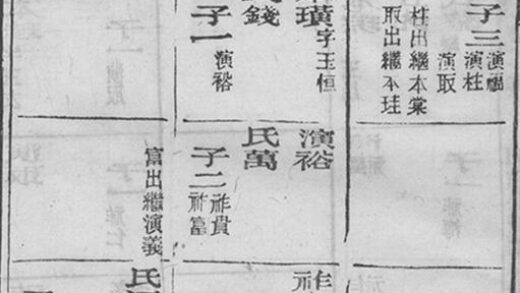 子三
演柱
演取
柱出繼本棠
取出繼本珪
璜字玉恒
錢
子一演裕
演裕
氏萬
子二祚貴
祚富
富出繼演義
祚
氏